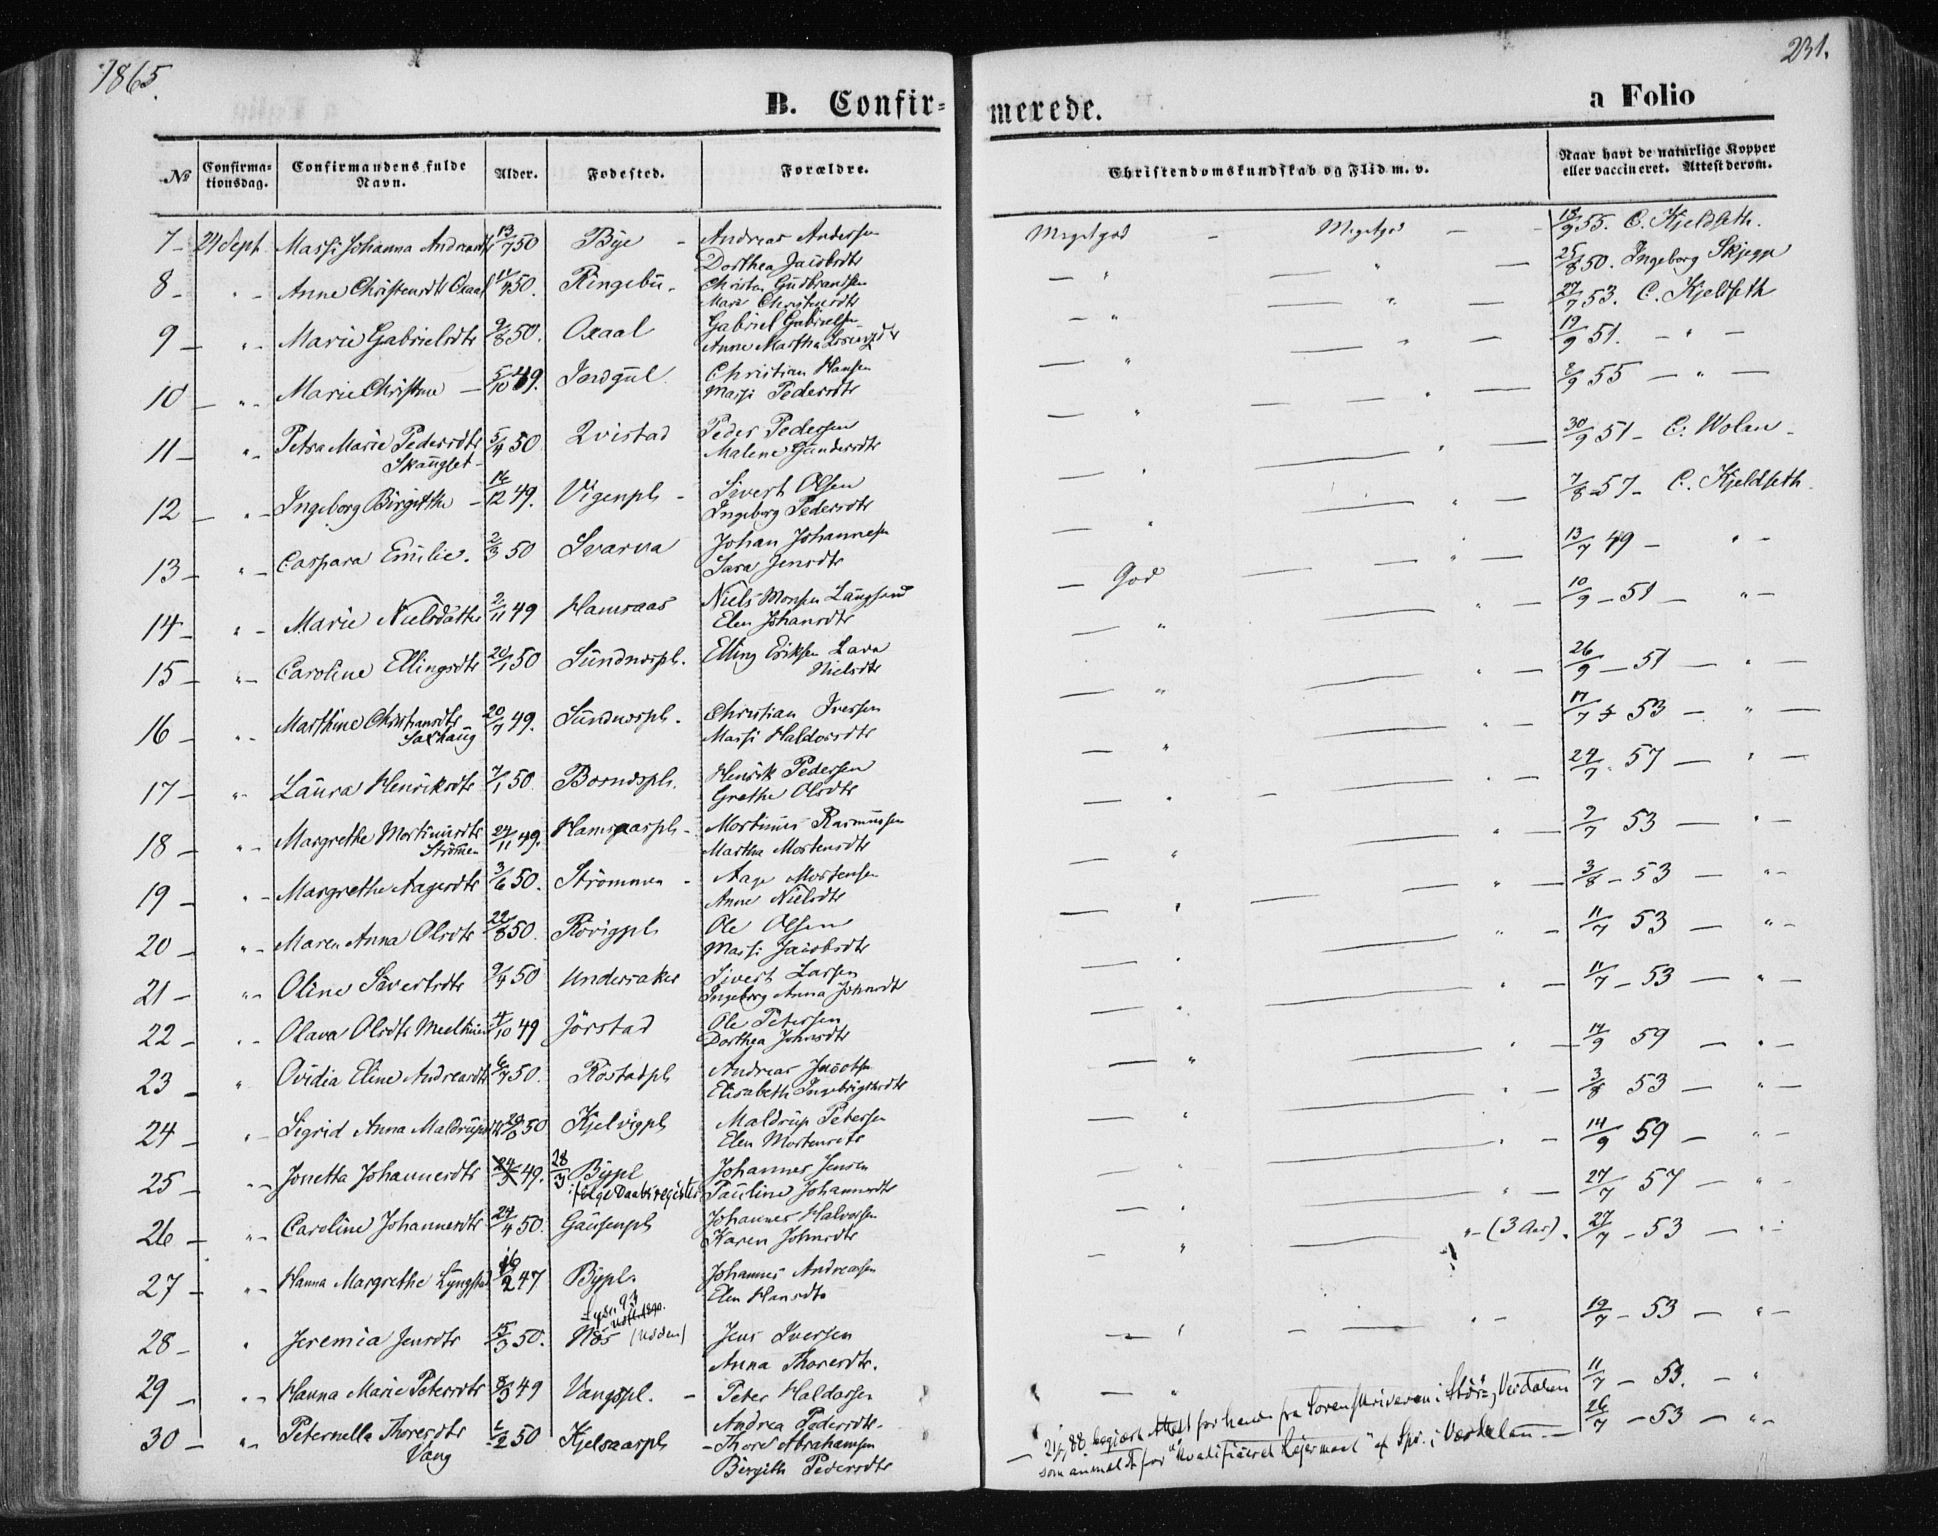 1865.
231.
B. Confir=
merede.
a Folio
No
Confirma-tionsdag.
Confirmandens fulde Navn.
Alder.
Fødested.
Forældre.
Christendomskundskab og Flid m. v.
Naar havt de naturlige Kopper eller vaccineret. Attest derom.
7 - 24 Sept. Massi Johanna 13/7 50 Bye - Andreas Andersen
Dorthea Jacobsdtr
Megetgod - Megetgod - - 55. C. Kjeldseth.
8 - " - Anne Christensdtr 50. Ringebu - Christen Gudbrandsen
Mari Christensdtr
- " - " - 25/8 50. Ingeborg Skjegge
9 - " - Marie Gabrielsdtr 9/8 50. Oxaal Gabriel Gabrielsen
Anne Martha
- " - " - 27/7 53. C. Kjeldseth
10 - " - Marie Christine - 5/10 49. Christian Hansen
Massi Pedersdtr
- " - " - 19/9 51. - " -
11 - " - Petra Marie Pedersdtr 5/4 50 Qvistad Peder Pedersen
Skaugset - Malene Gundersdtr
- " - " - 55 - " -
12 - " - Ingeborg Birgitthe - 12 49. Vigenpls - Sivert Olsen
Ingeborg Pedersdtr
- " - " - 30/9 51 - C. Wolan -
13 - " - Caspara Emilie. 2/3 50 Svarva Johan Johannesen
Sara Jensdtr
- " - " - 7/8 - 57 - C. Kjeldseth.
14 - " - Marie Nielsdatter 2/11 49 Hamraas Niels Monsen
Elen Johansdtr
- God - " - 13/7 49 - " -
15 - " - Caroline Ellingsdtr 20/1 50 Sundnespls. Elling Eriksen Lava
Nielsdtr
- " - " - 10/9 - 51 - " -
16 - " - Marthine Christiansdtr 20/7 49. Sundnespls. Christian Iversen
Saxhaug Massi Haldorsdtr
- " - " - 26/9 - 51 - " -
17 - " - Laura Henriksdtr 7/1 50. Henrik Pedersen
Grethe Olsdtr
- " - " - 17/7 53 - " -
18 - " - Margrethe Mortinusdtr 24/11 49. Hamraaspls - Mortinus Rasmussen
Strömen Martha Mortensdtr
- " - " - 24/7 57 - " -
19 - " - Margrethe Aagesdtr 3/6 50. Strömmen - Aage Mortensen
Anne Nielsdtr
- " - " - 2/7 53 - " -
20 - " - Maren Anna Olsdtr 22/8 50. Rövigpls Ole Olsen
Massi Jacobsdtr
- " - " - 3/8 - 53 - " -
21 - " - Oline Sivertsdtr 9/4 50 Undersaker Sivert Larsen
Ingeborg Anna Johnsdtr
- " - " - 11/7 53 - " -
22 - " - Olava Olsdtr 4/10 49 Jörstad Ole Petersen
Dorthea Johnsdtr
- " - " - 11/7 - 53 - " -
23 - " Ovidia Eline Andreasdtr 6/7 50. Röstadpls Andreas Jacobsen
Elisabeth Ingebrigtsdtr
- " - " - 14/9 59 - " -
24 - " - Sigrid Anna 50 Kjelvigpls Maldrup Petersen
Elen Mortensdtr
- " - " - 3/8 53 - " -
25 - " - Jonetta Johannesdtr 24/3 49. 28/3 Bypl Johannes Jensen
ifölge Daabsregister Pauline Johannesdtr
- " - " - 14/9 59 - " -
26 - " - Caroline Johannesdtr 24/4 50. Gausenpls Johannes Halvorsen
Karen Johnsdtr
- " - " - 27/7 57 - " -
27 - " - Hanna Margrethe Lyngstad 16/2 47 Bypl. Johannes Andreassen
Elen Hansdtr
- " - " - (3 Aar). 27/7 - 53 - " -
28 - " Jeremia Jensdtr 15/3 50. Næs (Udöen) Jens Iversen
Anna Thoresdtr.
- " - " - 19/7 - 53 - " -
29 - " - Hanna Marie Petersdtr 8/3 49 Vangspl. - Peter Haldorsen
Andrea Pedersdtr.
- " 11/7 - 53. - "
30 - " - Peternella Thoresdtr 50 Kjelsaaspls - Thore Abrahamsen
Vang Birgith Pedersdtr
26/7 - 53 - " -
- 88 begjært Attest for hende fra Sorenskriveren i Stör= & Verdalen
som anmeldt for "kvalificeret Leiermaal" af i Værdalen. -